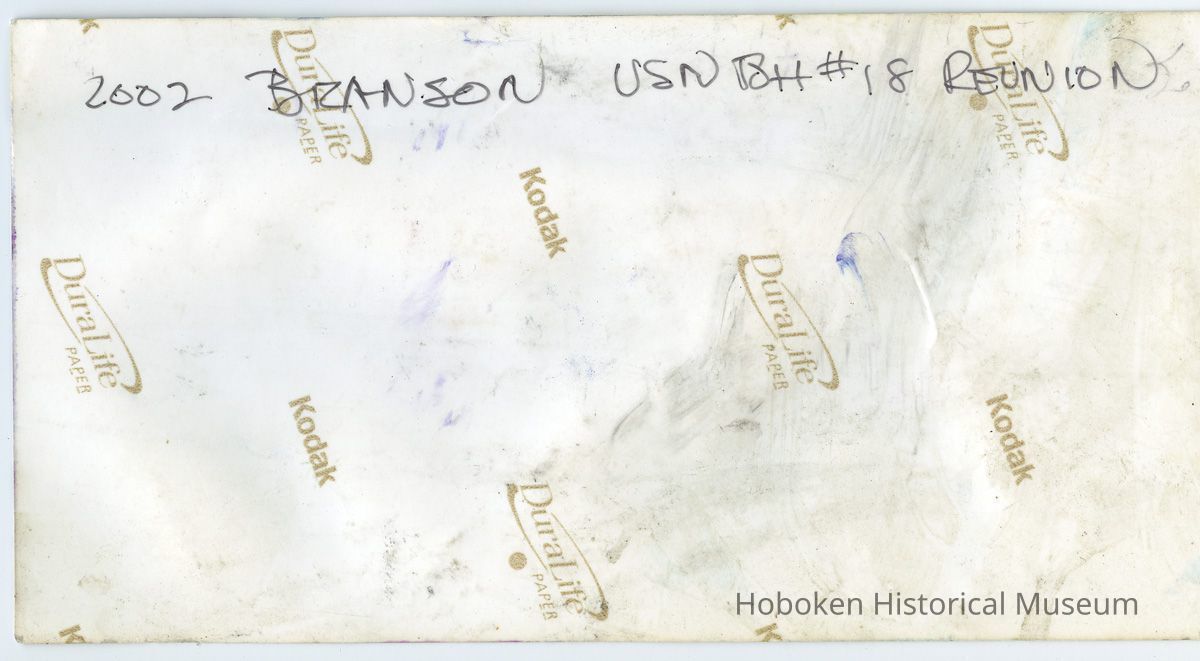 2002 BRANSON USN BH#18 REUNION
DuraLife
PAPER
DuraLife
PAPER
Kodak
DuraLife
PAPER
DuraLife
PAPER
Kodak
Kodak
DuraLife
PAPER
Hoboken Historical Museum